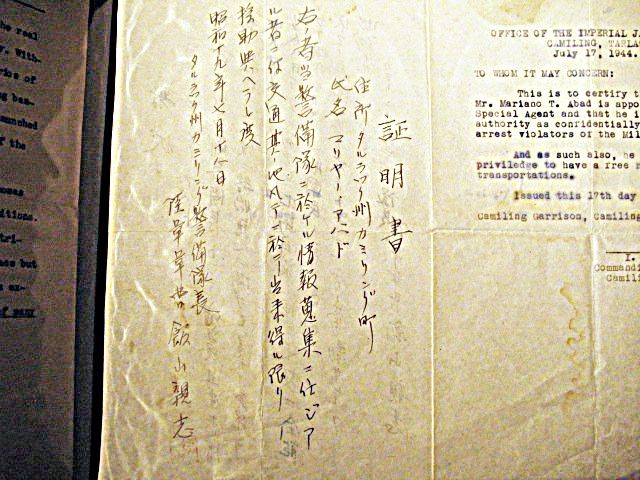 証明書
住所 タルラック州カミリング町
氏名 マリヤノ・アバド
右ノ者当警備隊ニ於ケル情報蒐集ニ任ジア
ル者ニ付交通其ノ他凡テニ於テ出来得ル限リノ
援助与ヘラレ度
昭和十九年七月十八日
タルラック州カミリング警備隊長
陸軍軍曹 飯山親志
OFFICE OF THE IMPERIAL JA
CAMILING, TARLA
July 17, 1944.
TO WHOM IT MAY CONCERN:
This is to certify t
Mr. Mariano T. Abad is appo
Special Agent and that he i
authority as confidentially
arrest violators of the Mil
And as such also, he
priviledge to have a free
transportations.
Issued this 17th day
Camiling Garrison, Camiling
Commandi
Camil
the real
With-
of
unched
the
tions.
but